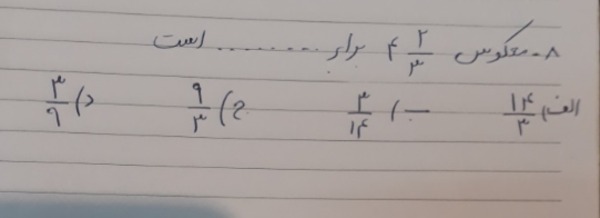 ۸- معکوس ۴ ۲/۳ برابر ........ است
الف) ۱۴/۳ ب) ۳/۱۴ ج) ۹/۳ د) ۳/۹